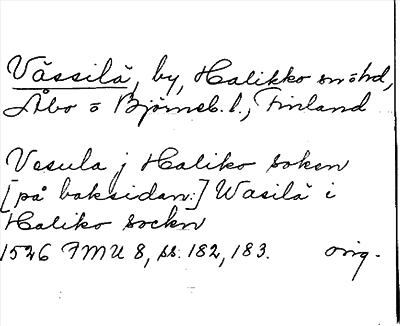 Vässilä, by, Halikko sn o hd,
Åbo o Björneb. l., Finland
Vesula j Haliko soken
[på baksidan:] Wasilä i
Haliko sockn
1526 FMU 8, ss. 182, 183. orig.